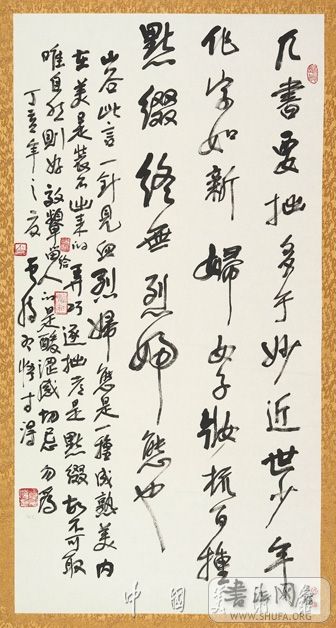 凡書要拙多于妙近世少年
作字如新婦女子妝梳百種
點綴終無烈婦態也
山谷此言一針見血烈婦態是一種成熟美内
在美是裝不出来的弄巧逐拙是點綴故不可取
唯自然則好效颦是酸澀感切忌勿為
丁亥年之夏
中國
書法网
WWW.SHUFA.ORG